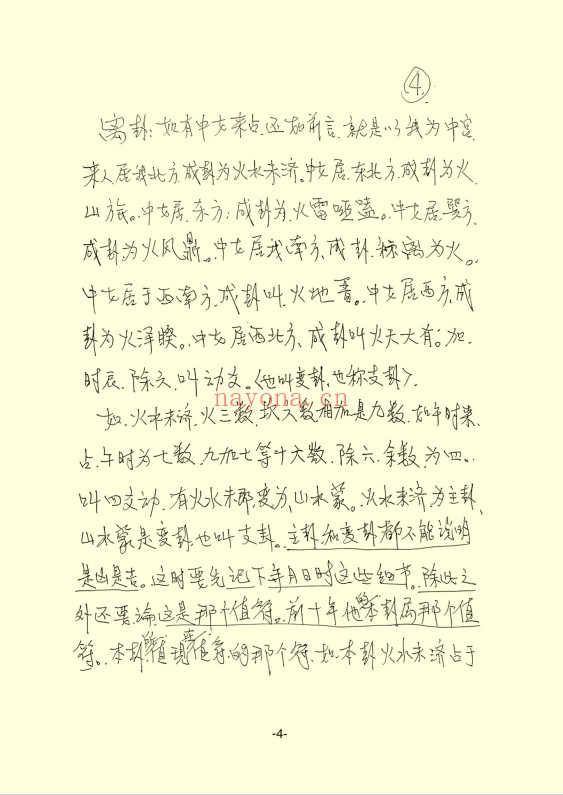 4.
离卦：如有中女来占.还如前言.就是以我为中宫.
来人居我北方.成卦为火水未济。中女居.东北方.成卦为火.
山旅。中女居.东方；成卦为.火雷噬嗑。中女居巽方.
成卦为火风鼎。中女居我南方.成卦.称离为火。
中女居于西南方.成卦叫.火地晋。中女居西方.成
卦为火泽睽。中女居西北方、成卦叫火天大有。加.
时辰.除六.叫动爻。〈也叫变卦.也称支卦〉.
nayona.cn
如.火水未济.火三数.坎六数相加是九数.如午时来.
占.午时为七数.九加七等十六数.除六.余数.为四.
叫四爻动.有火水未济变为.山水蒙。火水未济.为主卦.
山水蒙是变卦.也叫支卦。主卦和变卦都不能说明
是凶是吉。这时要先记下年月日时这些细节。除此之
外还要论.这是那个值符。前十年他本卦属那个值
符。本卦值现值符的那个符.如本卦火水未济占于
-4-